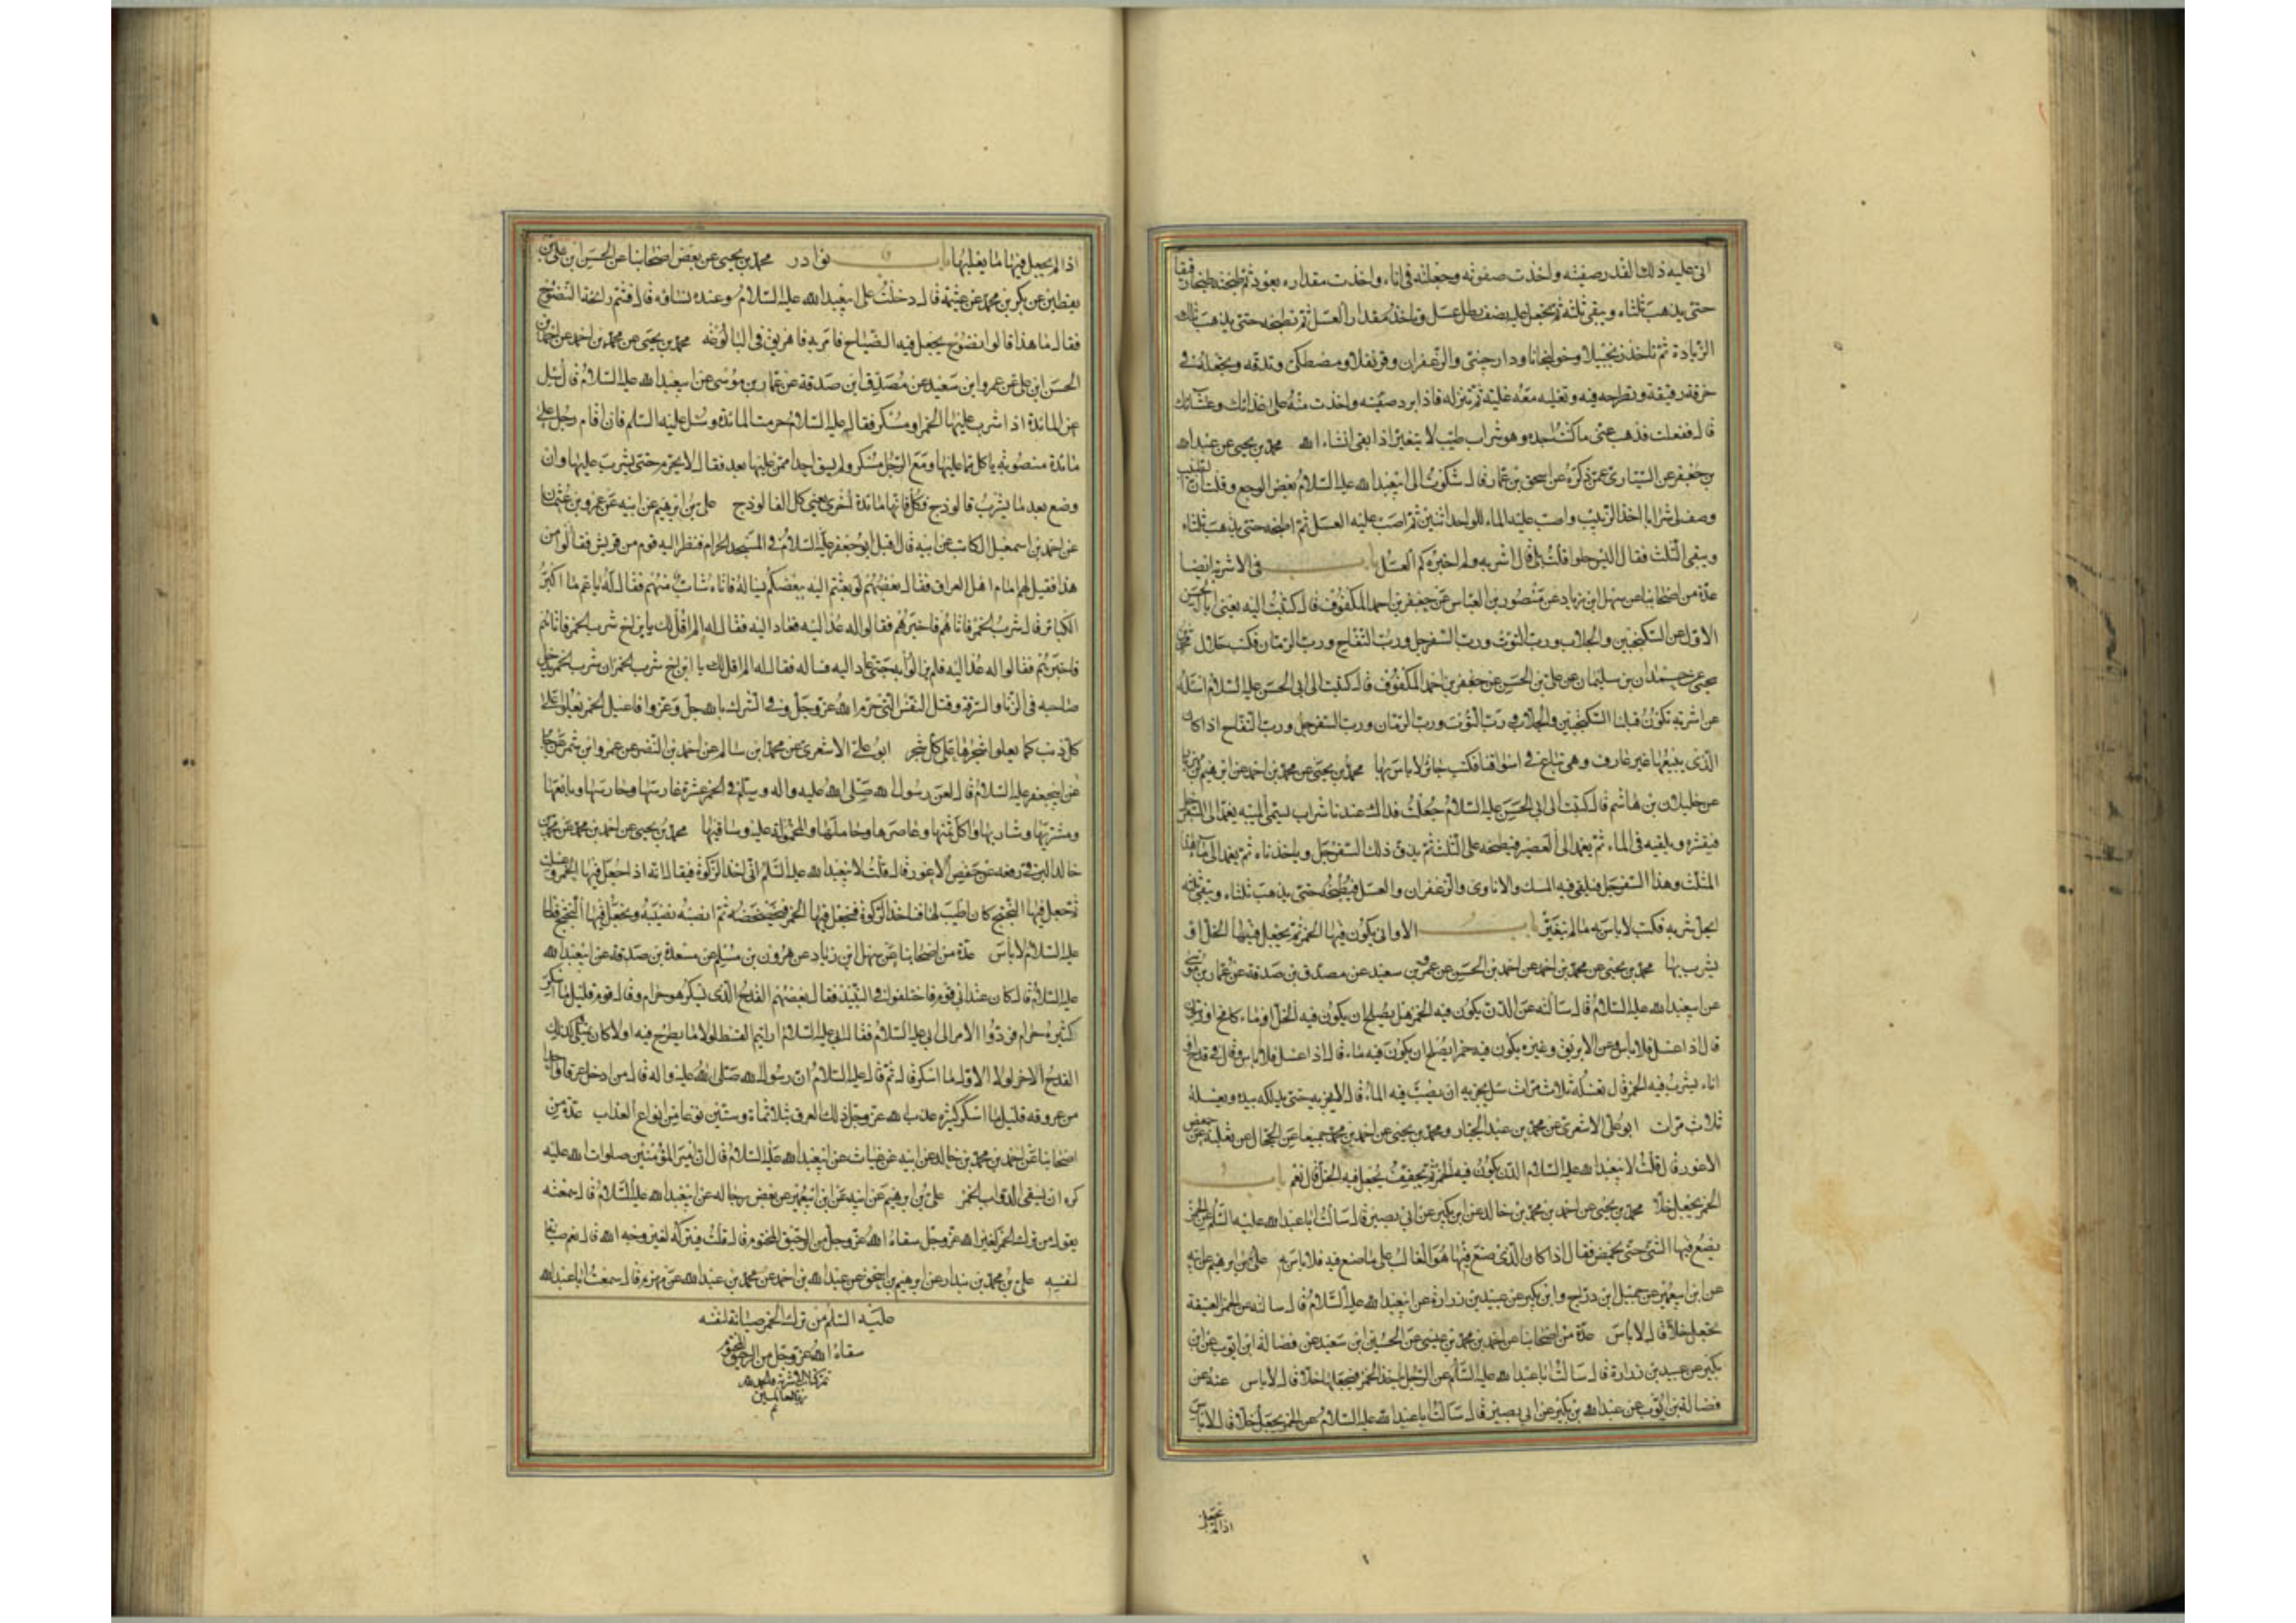 اتى عليه ذلك القدر صفيته واخذت صفوته وجعلته فى اناء واخذت مقداره بعود ثم طبخته طبخا رقيقا
حتى يذهب ثلثاه ويبقى ثلثه ثم تجعل عليه نصف رطل عسل وتاخذ مقدار العسل ثم تطبخه حتى يذهب تلك
الزيادة ثم تاخذ زنجبيلا وخولنجانا ودارچينى والزعفران وقرنفلا ومصطكى وتدقه وتجعله فى
خرقة رقيقة وتطرحه فيه وتغليه معه غلية ثم تنزله فاذا برد صفيته واخذت منه على غدائك وعشائك
قال ففعلت فذهب عنى ما كنت اجده وهو شراب طيب لا يتغير اذا بقى انشاء الله محمد بن يحيى عن عبد الله
بن جعفر عن السيارى عمن ذكره عن اسحق بن عمار قال شكوت الى ابيعبد الله عليه السلام بعض الوجع وقلت ان الطبيب
وصف لى شرابا اخذ الزبيب واصب عليه الماء للواحد اثنين ثم اصب عليه العسل ثم اطبخه حتى يذهب ثلثاه
ويبقى الثلث فقال اليس حلوا قلت بلى قال اشربه ولم اخبره كم العسل باب فى الاشربة ايضا
عدة من اصحابنا عن سهل ابن زياد عن منصور بن العباس عن جعفر بن احمد المكفوف قال كتبت اليه يعنى ابا الحسن
الاول عن السكنجبين والجلاب ورب التوت ورب السفرجل ورب التفاح ورب الرمان فكتب حلال محمد بن
يحيى عن حمدان بن سليمان عن على بن الحسن عن جعفر بن احمد المكفوف قال كتبت الى ابى الحسن عليه السلام اسئله
عن اشربة تكون قبلنا السكنجبين والجلاب ورب التوت ورب الرمان ورب السفرجل ورب التفاح اذا كان
الذى يبيعها غير عارف وهى تباع فى اسواقنا فكتب جائز لا باس بها محمد بن يحيى عن محمد بن احمد عن ابرهيم بن مهزيار
عن خليلان بن هاشم قال كتبت الى ابى الحسن عليه السلام جعلت فداك عندنا شراب يسمى الميبه يعمد الى السفرجل
فيقشره ويلقيه فى الماء ثم يعمد الى العصير فيطبخه على الثلث ثم يدق ذلك السفرجل وياخذ ماءه ثم يعمد الى ماء هذا
المثلث وهذا السفرجل فيلقى فيه المسك والافاوى والزعفران والعسل فيطبخه حتى يذهب ثلثاه ويبقى ثلثه
ايحل شربه فكتب لا باس به ما لم يتغير باب الاوانى يكون فيها الخمر ثم يجعل فيها الخل او
يشرب بها محمد بن يحيى عن محمد بن احمد عن احمد بن الحسن عن عمرو بن سعيد عن مصدق بن صدقة عن عمار بن موسى
عن ابيعبد الله عليه السلام قال سالته عن الدن يكون فيه الخمر هل يصلح ان يكون فيه الخل او ماء كامخ او زيتون
قال اذا غسل فلا باس وعن الابريق وغيره يكون فيه خمر ايصلح ان يكون فيه ماء قال اذا غسل فلا باس وقال فى قدح او
اناء يشرب فيه الخمر قال تغسله ثلاث مرات سئل يجزيه ان يصب فيه الماء قال لا يجزيه حتى يدلكه بيده ويغسله
ثلاث مرات ابو على الاشعرى عن محمد بن عبد الجبار ومحمد بن يحيى عن احمد بن محمد جميعا عن الحجال عن ثعلبة عن حفص
الاعور قال قلت لابيعبد الله عليه السلام الدن يكون فيه الخمر ثم يجفف يجعل فيه الخل قال نعم باب
الخمر يجعل خلا محمد بن يحيى عن احمد بن محمد بن خالد عن ابن بكير عن ابى بصير قال سالت ابا عبد الله عليه السلم عن الخمر
يصنع فيها الشئ حتى يحمض فقال اذا كان الذى صنع فيها هو الغالب على ما صنع فيه فلا باس به على بن ابرهيم عن ابيه
عن ابن ابيعمير عن جميل ابن دراج وابن بكير عن عبيد بن زرارة عن ابيعبد الله عليه السلام قال سالته عن الخمر العتيقة
تجعل خلا قال لا باس عدة من اصحابنا عن احمد بن محمد بن عيسى عن الحسين ابن سعيد عن فضالة ابن ايوب عن ابن
بكير عن عبيد بن زرارة قال سالت ابا عبد الله عليه السلم عن الرجل ياخذ الخمر فيجعلها خلا قال لا باس عنه عن
فضالة بن ايوب عن عبد الله بن بكير عن ابى بصير قال سالت ابا عبد الله عليه السلام عن الخمر يجعل خلا قال لا باس
اذا لم يجعل
اذا لم يجعل فيها ما يغلبها باب نوادر محمد بن يحيى عن بعض اصحابنا عن الحسن ابن على بن
يقطين عن بكر بن محمد عن عيثمة قال دخلت على ابيعبد الله عليه السلام وعنده نساؤه قال فشم رائحة النضوح
فقال ما هذا قالوا نضوح يجعل فيه الضياح فامر به فاهريق فى البالوعة محمد بن يحيى عن محمد بن احمد عن احمد بن
الحسن ابن على عن عمرو ابن سعيد عن مصدق ابن صدقة عن عمار بن موسى عن ابيعبد الله عليه السلام قال سئل
عن المائدة اذا شرب عليها الخمر او مسكر فقال عليه السلام حرمت المائدة وسئل عليه السلم فان اقام رجل على
مائدة منصوبة ياكل مما عليها ومع الرجل مسكر ولم يسق احدا ممن عليها بعد فقال لا يحرم حتى يشرب عليها وان
وضع بعد ما يشرب فالوذج فكل فانها مائدة اخرى يعنى كل الفالوذج على بن ابرهيم عن ابيه عن عمرو بن عثمان
عن احمد بن اسمعيل الكاتب عن ابيه قال اقبل ابو جعفر عليه السلام فى المسجد الحرام فنظر اليه قوم من قريش فقالوا من
هذا فقيل لهم امام اهل العراق فقال بعضهم لو بعثتم اليه بعضكم يساله فاتاه شاب منهم فقال له يا عم ما اكبر
الكبائر قال شرب الخمر فاتاهم فاخبرهم فقالوا له عد اليه فعاد اليه فقال له الم اقل لك يا بن اخ شرب الخمر فاتاهم
فاخبرهم فقالوا له عد اليه فلم يزالوا به حتى عاد اليه فساله فقال له الم اقل لك يا ابن اخ شرب الخمر ان شرب الخمر يدخل
صاحبه فى الزنا والسرقة وقتل النفس التى حرم الله عز وجل وفى الشرك بالله جل وعز وافاعيل الخمر تعلو على
كل ذنب كما يعلوا شجرها على كل شجر ابو على الاشعرى عن محمد ابن سالم عن احمد بن النضر عن عمرو ابن شمر عن جابر
عن ابيجعفر عليه السلام قال لعن رسول الله صلى الله عليه واله وسلم فى الخمر عشرة غارسها وحارسها وبايعها
ومشتريها وشاربها واكل ثمنها وعاصرها وحاملها والمحمولة اليه وساقيها محمد بن يحيى عن احمد بن محمد عن محمد بن
خالد البرقى رفعه عن حفص الاعور قال قلت لابيعبد الله عليه السلم انى اخذ الركوة فيقال انه اذا جعل فيها الخمر وغسلت
ثم جعل فيها البختج كان اطيب لها فناخذ الركوة فنجعل فيها الخمر فنخضخضه ثم نصبه ونجعل فيها البختج قال
عليه السلام لا باس عدة من اصحابنا عن سهل ابن زياد عن هرون بن مسلم عن مسعدة بن صدقة عن ابيعبد الله
عليه السلام قال كان عند ابى قوم فاختلفوا فى النبيذ فقال بعضهم القدح الذى يسكر هو حرام وقال قوم قليل ما اسكر
كثيره حرام فردوا الامر الى ابى عليه السلام فقال ابى عليه السلام ارايتم القسط لولا ما يطرح فيه اولا كان يمتلى كذلك
القدح الاخر لولا الاول ما اسكر قال ثم قال عليه السلام ان رسول الله صلى الله عليه واله قال من ادخل عرقا واحدا
من عروقه قليل ما اسكر كثيره عذب الله عز وجل ذلك العرق بثلاثمائة وستين نوعا من انواع العذاب عدة من
اصحابنا عن احمد بن محمد بن خالد عن ابيه عن غياث عن ابيعبد الله عليه السلام قال ان امير المؤمنين صلوات الله عليه
كره ان يسقى الدواب الخمر على بن ابرهيم عن ابيه عن ابن ابيعمير عن بعض رجاله عن ابيعبد الله عليه السلام قال سمعته
يقول من ترك الخمر لغير الله عز وجل سقاه الله عز وجل من الرحيق المختوم قال قلت فيتركه لغير وجه الله قال نعم صيانة
لنفسه على بن محمد بن بندار عن ابرهيم بن اسحق عن عبد الله بن احمد عن محمد بن عبد الله عن مهزم قال سمعت ابا عبد الله
عليه السلم من ترك الخمر صيانة لنفسه
سقاه الله عز وجل من الرحيق المختوم
تم كتاب الاشربة والحمد لله
رب العالمين
تم